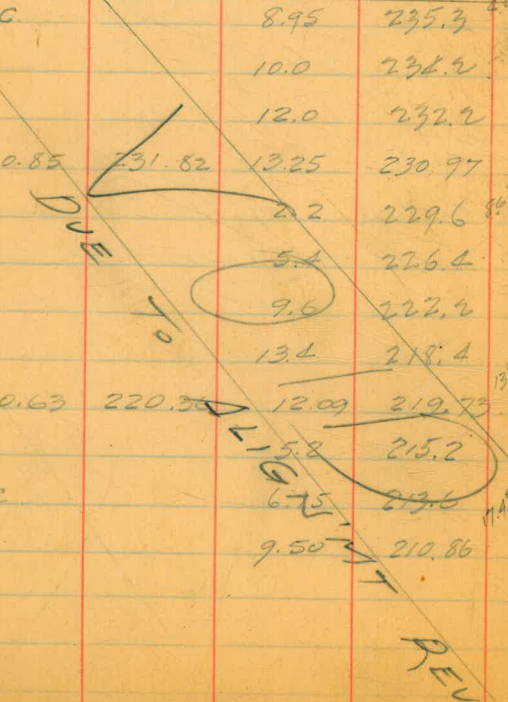 C. 8.95 235.3
10.0 234.2
12.0 232.2
0.85 231.82 13.25 230.97
2.2 229.6
5.4 226.4
9.6 222.2
13.4 218.4
0.63 220.36 12.09 219.73
5.2 215.2
6.75 213.6
9.50 210.86
DUE TO ALIGN'MT REV
VOID